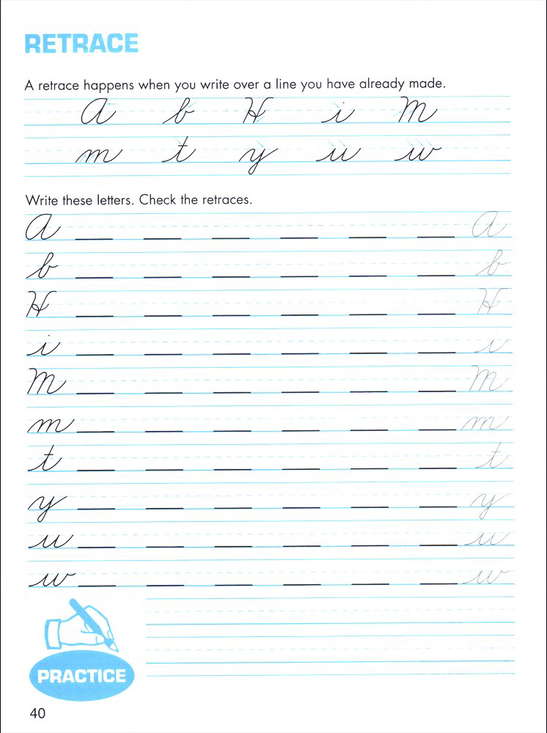 RETRACE
A retrace happens when you write over a line you have already made.
A b H i M
m t y u w
Write these letters. Check the retraces.
A A
b b
H H
i i
M M
m m
t t
y y
u u
w w
PRACTICE
40